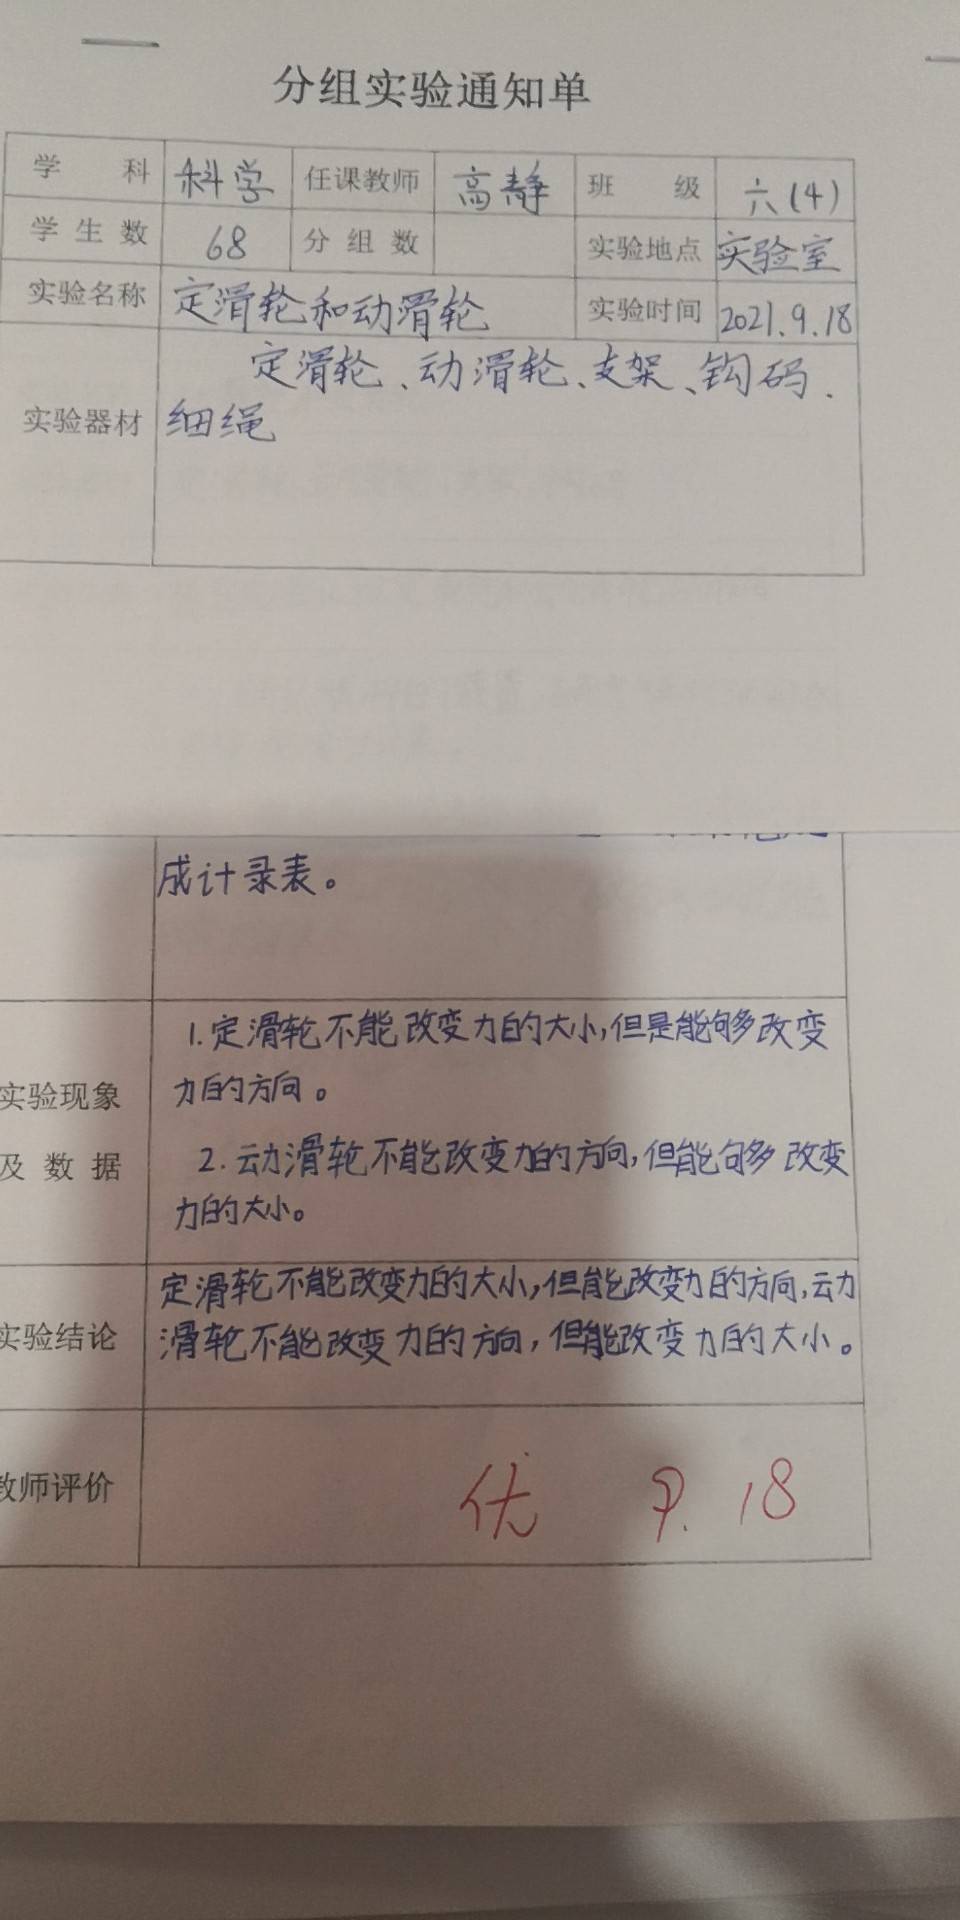 分组实验通知单
学 科 科学 任课教师 高静 班 级 六(4)
学生数 68 分组数 实验地点 实验室
实验名称 定滑轮和动滑轮 实验时间 2021.9.18
定滑轮、动滑轮、支架、钩码、
实验器材 细绳
成计录表。
1.定滑轮不能改变力的大小,但是能够改变
实验现象 力的方向。
及数据 2.动滑轮不能改变力的方向,但能够改变
力的大小。
定滑轮不能改变力的大小,但能改变力的方向,动
实验结论 滑轮不能改变力的方向,但能改变力的大小。
教师评价 优 9.18